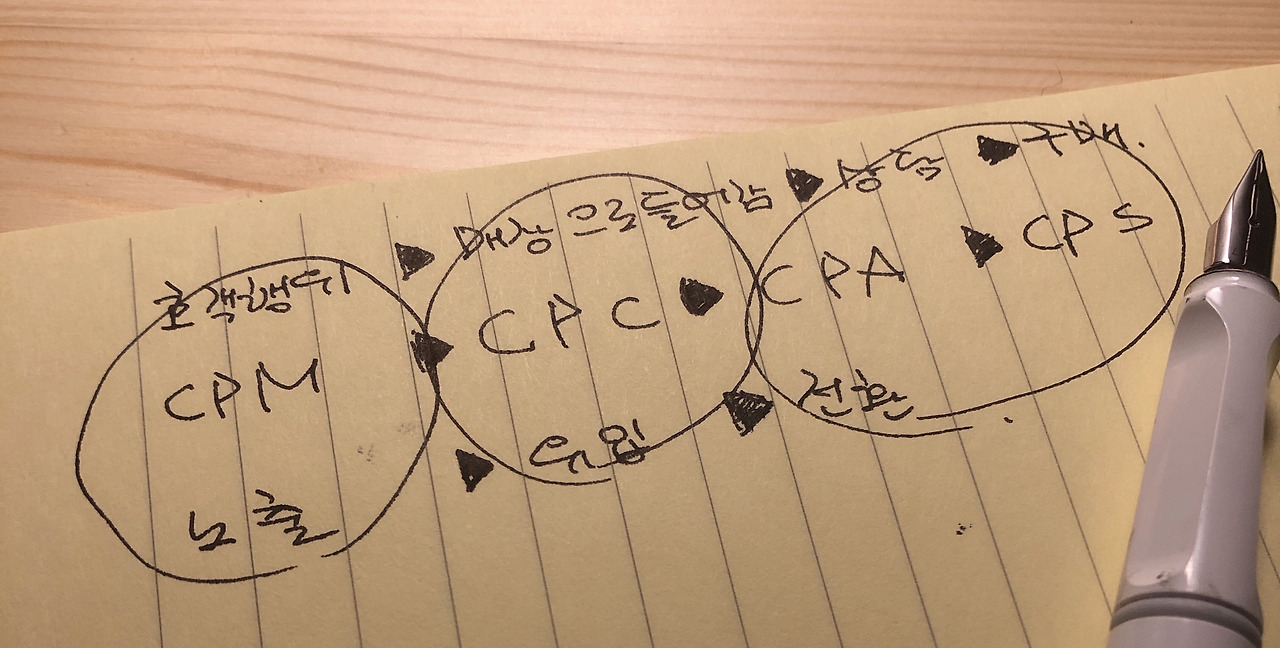 호객행위 ▶ 매장으로 들어감 ▶ 상담 ▶ 구매.
CPM ▶ CPC ▶ CPA ▶ CPS
노출 ▶ 유입 ▶ 전환